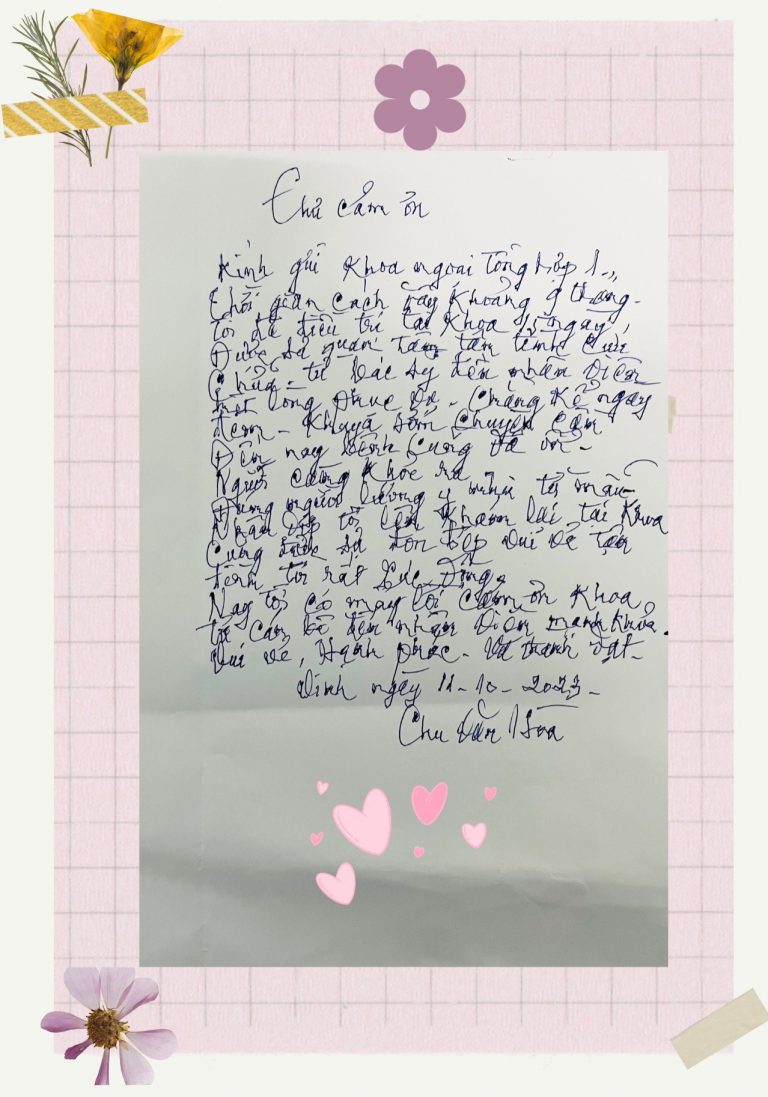 Thư cảm ơn
Kính gửi Khoa ngoại Tổng hợp 1.,
Thời gian cách đây khoảng 9 tháng.
tôi đã điều trị tại Khoa ngày,
Được sự quan tâm tận tình Cứu
Chữa - từ bác sỹ đến nhân viên
hết lòng phục vụ - Chẳng kể ngày
đêm - Khuya sớm Chuyên Cần
Đến nay bệnh cũng đã ổn -
Người càng khỏe ra
Đúng người lương y như từ mẫu
Nhân dịp tôi lên Khám lại tại Khoa
Cũng được sự đón tiếp vui vẻ tận
tình tôi rất xúc động,
Nay tôi có mấy lời cảm ơn Khoa
từ cán bộ đến nhân viên mạnh khỏe.
Vui vẻ, Hạnh phúc - Và thành đạt -
Vinh ngày 11-10-2023-
Chu Văn Hòa